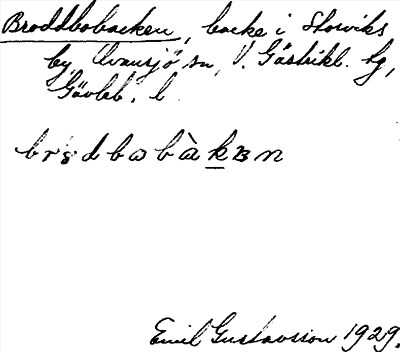 Broddbobacken, backe i Storviks
by Ovansjö sn, V. Gästrikl. hg,
Gävleb. l.
Emil Gustavsson 1929.